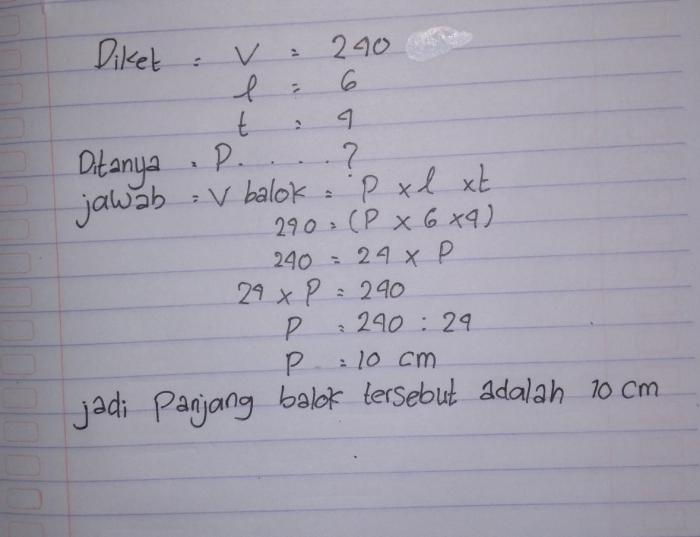 Diket = V = 240
l = 6
t = 4
Ditanya = P. . . . . ?
jawab = V balok = P x l x t
240 = (P x 6 x 4)
240 = 24 x P
24 x P = 240
P = 240 : 24
P = 10 cm
jadi Panjang balok tersebut adalah 10 cm